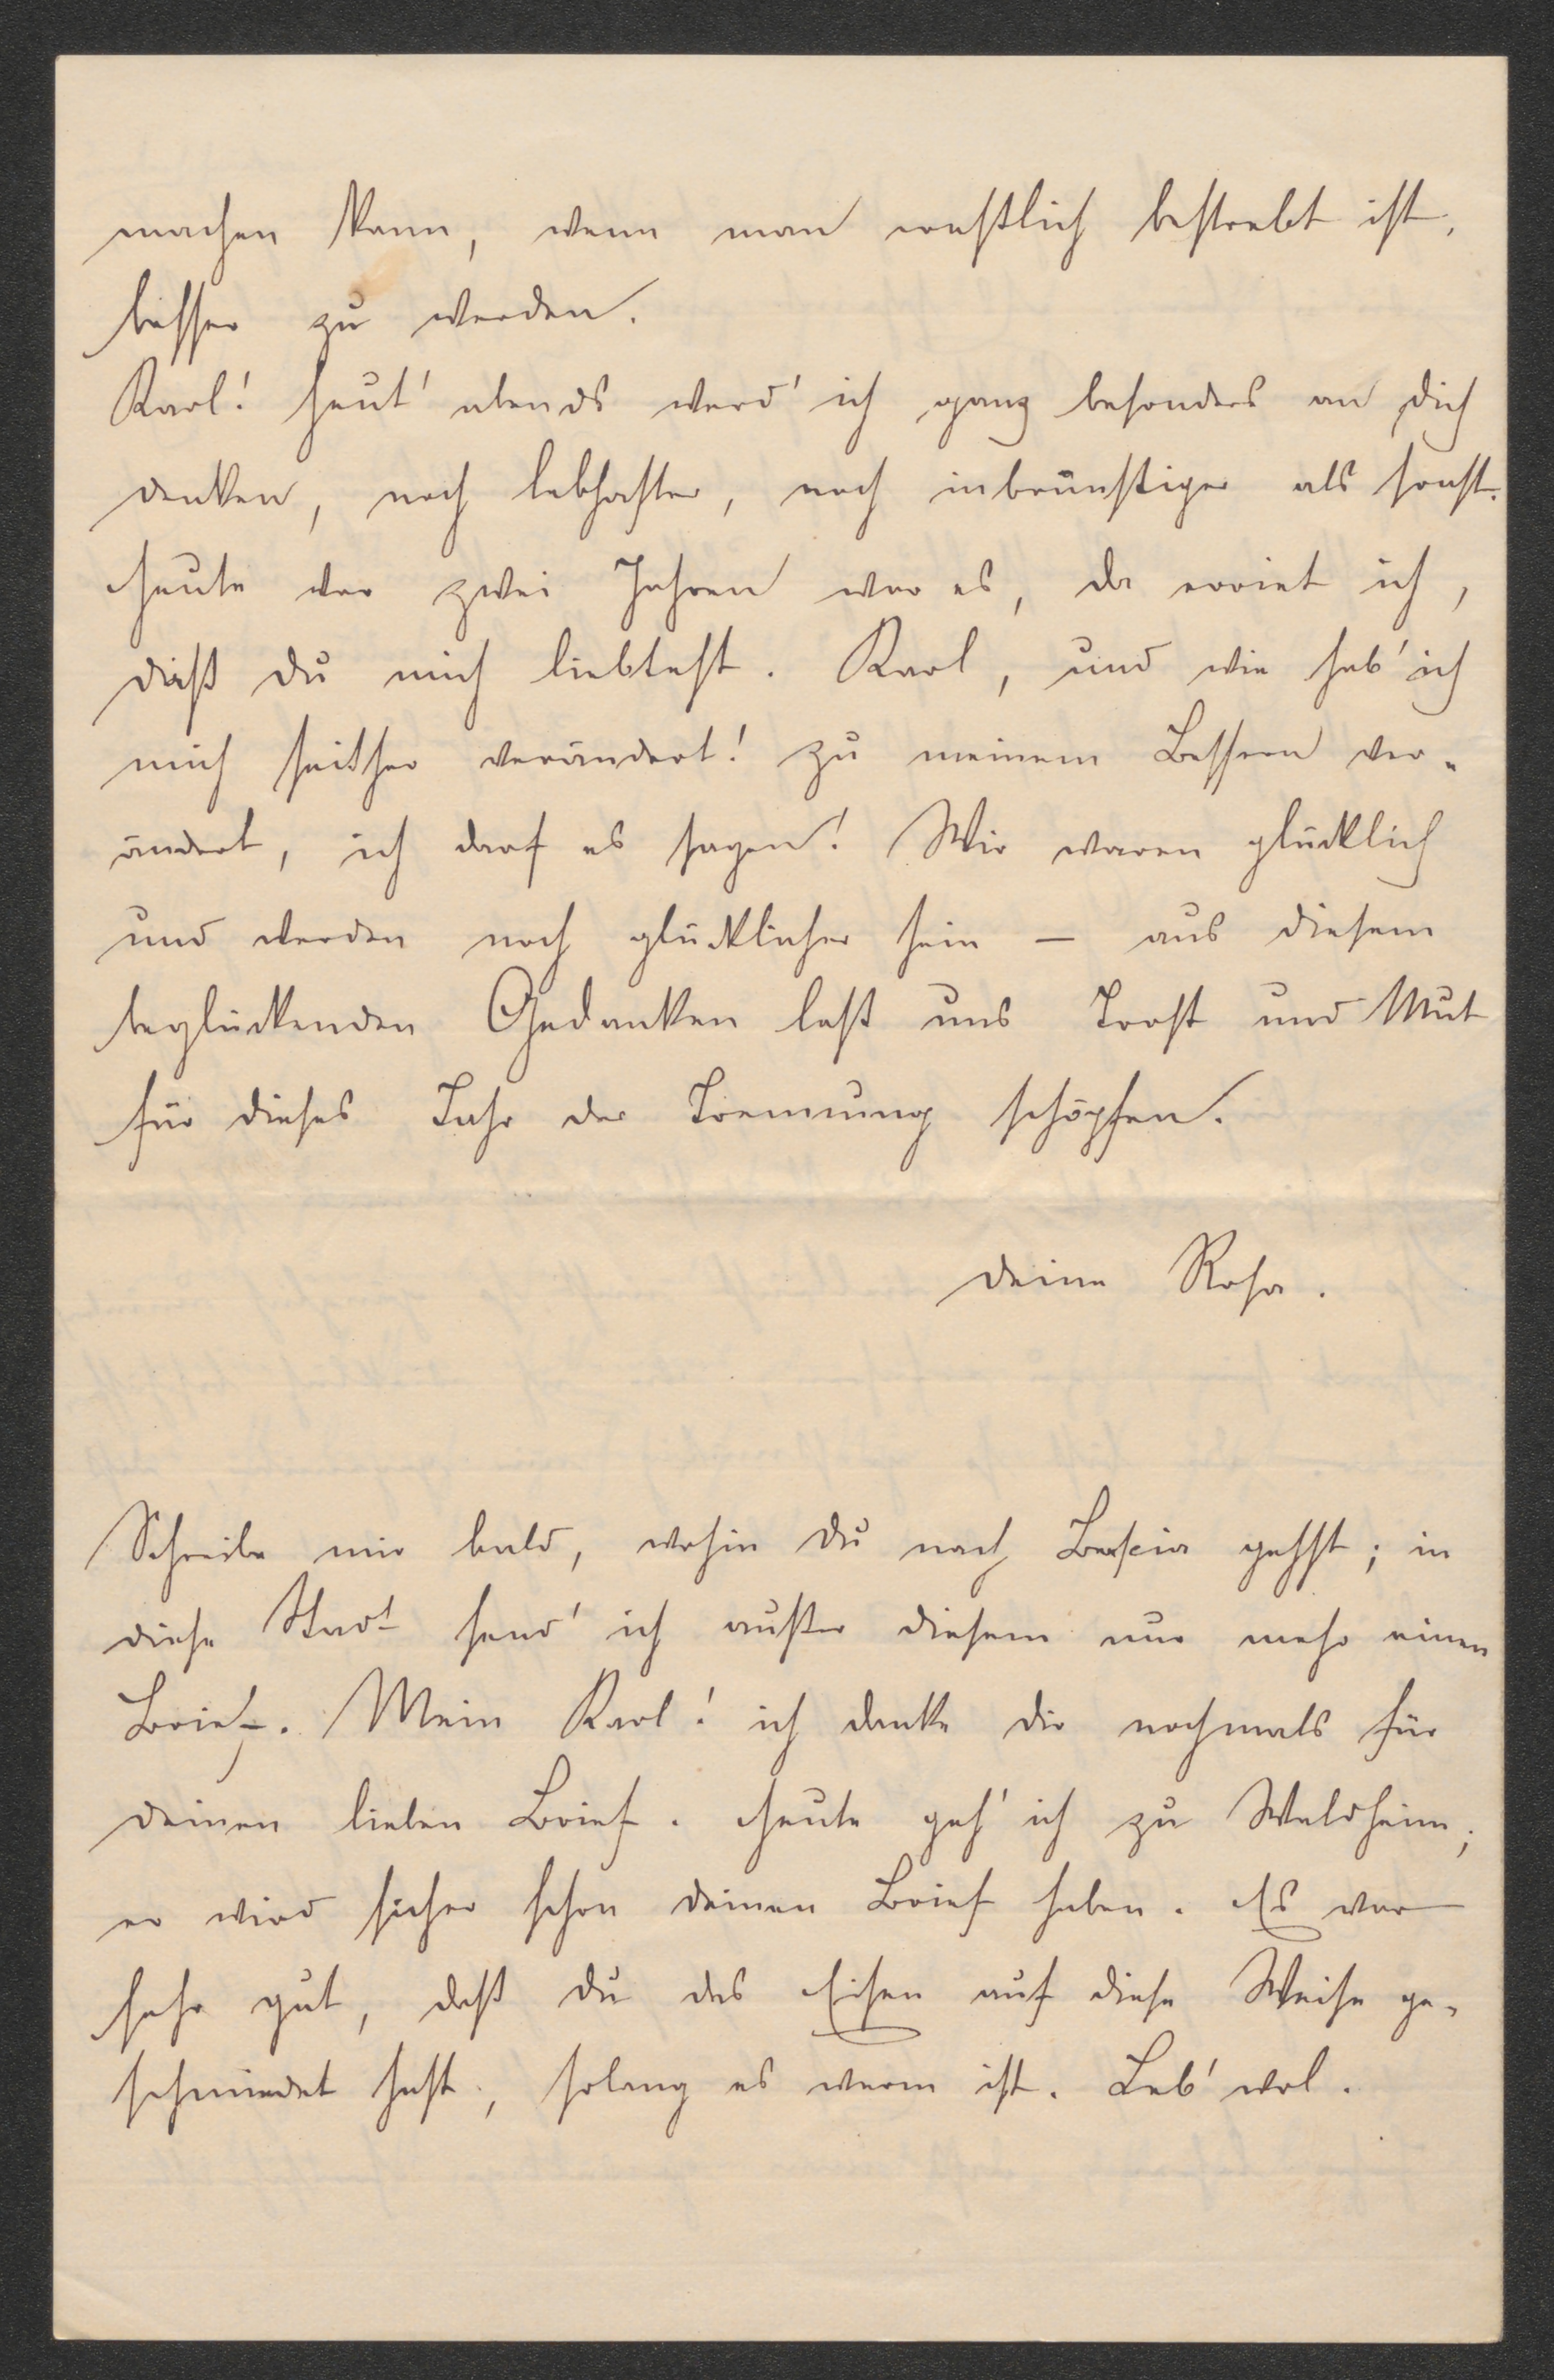 machen kann, wenn man ernstlich bestrebt ist,
besser zu werden.
Karl! heut' abends werd' ich ganz besonders an dich
denken, noch lebhafter, noch inbrünstiger als sonst.
Heute vor zwei Jahren war es, da erriet ich,
daß du mich liebtest. Karl, und wie hab' ich
mich seither verändert! zu meinem Bessern ver-
ändert, ich darf es sagen! Wir waren glücklich
und werden noch glücklicher sein — aus diesem
beglückenden Gedanken laß uns Trost und Mut
für dieses Jahr der Trennung schöpfen.
deine Rosa.
Schreibe mir bald, wohin du nach Brescia gehst; in
diese Stadt send' ich außer diesem nur mehr einen
Brief. Mein Karl! ich danke dir nochmals für
deinen lieben Brief. Heute geh' ich zu Waldheim;
er wird sicher schon deinen Brief haben. Es war
sehr gut, daß du das Eisen auf diese Weise ge-
schmiedet hast, solang es warm ist. Leb' wol.